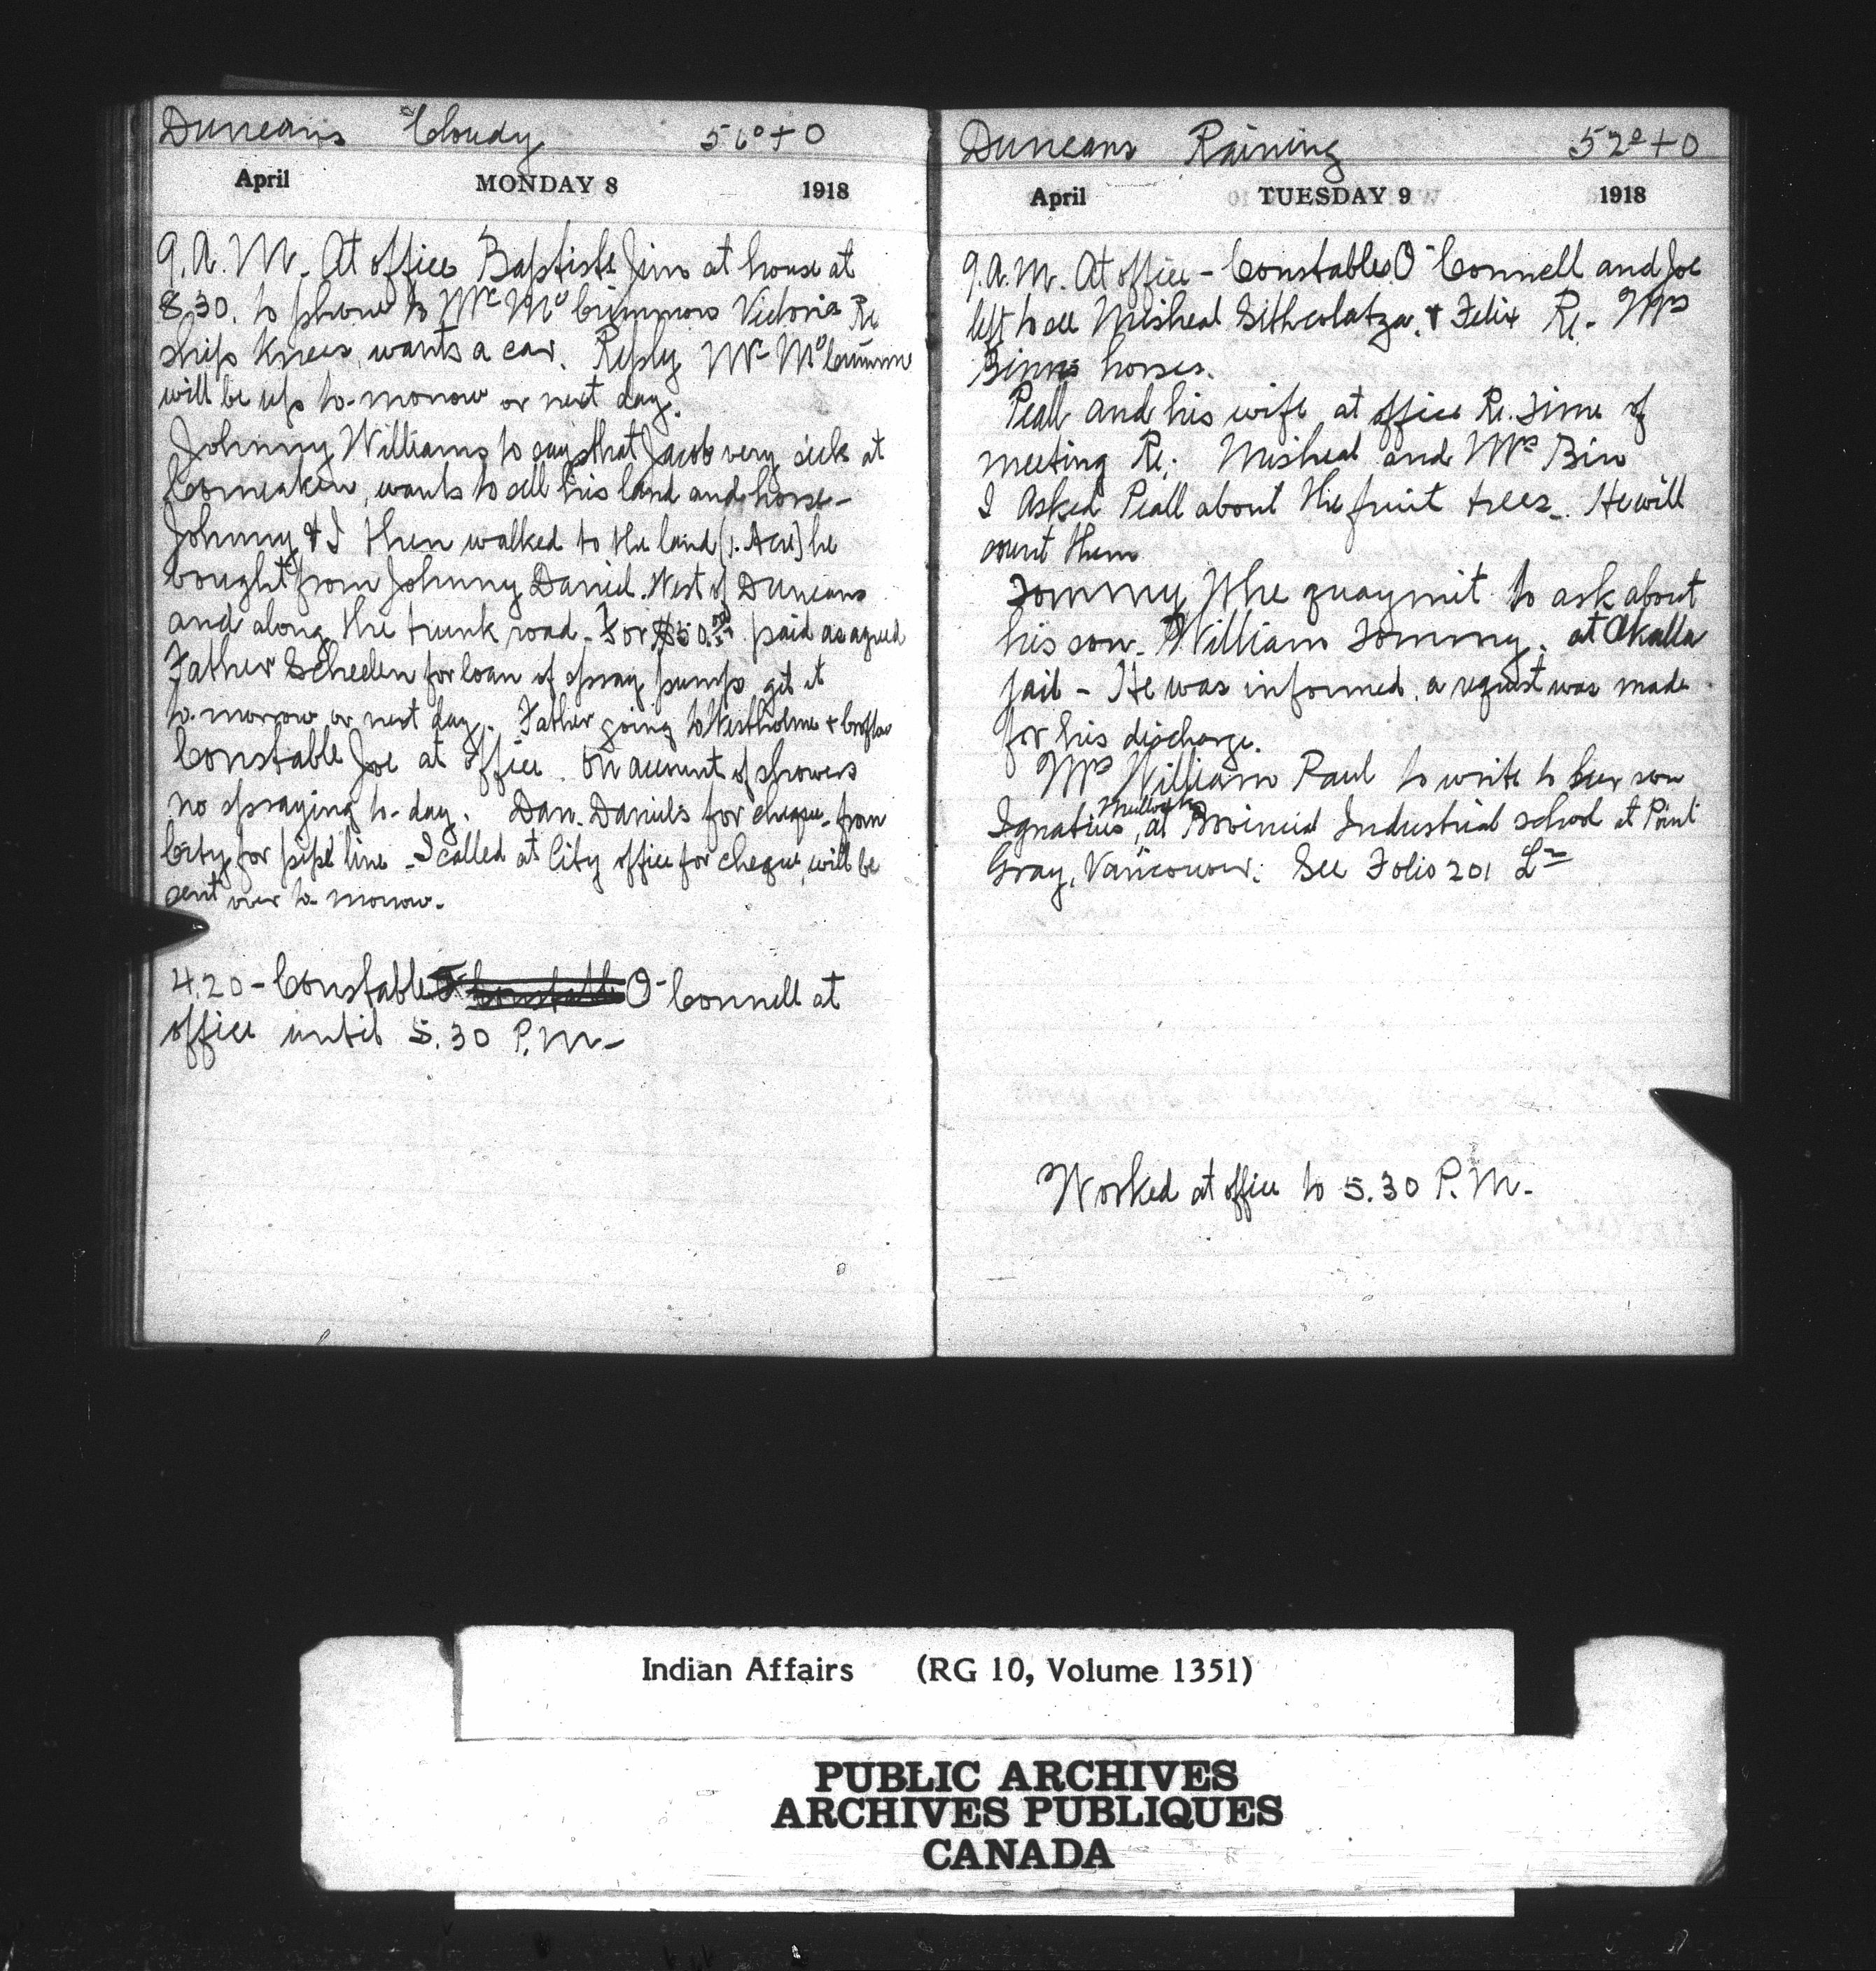 Duncans Cloudy 56°+0
April MONDAY 8 1918
9. A. M. At office Baptiste Jim at house at
8.30. to phone to Mr Victoria Re
ship knees, wants a car. Reply Mr
will be up to-morrow or next day.
Johnny Williams to say that Jacob very sick at
Comeaken, wants to sell his land and horse -
Johnny & I then walked to the land (1. Acre) he
bought from Johnny Daniel. West of Duncans
and along the trunk road. For $50.00 paid as agreed
Father Scheelen for loan of spray pump get it
to-morrow or next day. Father going to Westholme &
Constable Joe at office. On account of showers
no spraying to-day. Dan. Daniels for cheque from
City for pipe line - I called at City office for cheque, will be
sent over to-morrow.
4.20 - Constable O'Connell at
office until 5.30 P.M -
Duncans Raining 52°+0
April TUESDAY 9 1918
9. A. M. At office - Constables O'Connell and Joe
left to see Misheal & Felix Re. Mrs
horses.
Peall and his wife at office Re. time of
meeting Re: Misheal and Mrs Bin
I asked Peall about the fruit trees. He will
count them
Tommy to ask about
his son. William Tommy. at Okalla
jail - He was informed, a request was made
for his discharge.
Mrs William Paul to write to her son
Ignatius, at Provincial Industrial school at Point
Gray, Vancouver. See Folio 201
Worked at office to 5.30 P.M.
Indian Affairs (RG 10, Volume 1351)
PUBLIC ARCHIVES
ARCHIVES PUBLIQUES
CANADA